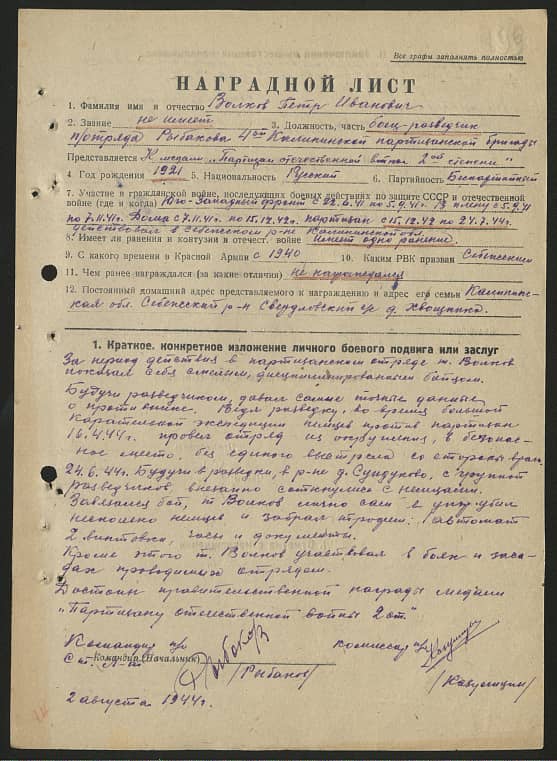 Все графы заполнять полностью
НАГРАДНОЙ ЛИСТ
1. Фамилия имя и отчество Волков Петр Иванович
2. Звание не имеет 3. Должность, часть боец-разведчик
п/отряда Рыбакова 4ой Калининской партизанской бригады
Представляется К медали "Партизан отечественной войны 2ой степени"
4. Год рождения 1921 5. Национальность Русский 6. Партийность Беспартийный
7. Участие в гражданской войне, последующих боевых действиях по защите СССР и отечественной
войне (где и когда) Юго-Западный фронт с 22.6.41 по 5.9.41 В плену с 5.9.41
по 7.11.41. Дома с 7.11.41. по 15.12.42. партизан с 15.12.42 по 24.7.44.
действовал в Себежском р-не Калининской обл.
8. Имеет ли ранения и контузии в отечест. войне Имеет одно ранение.
9. С какого времени в Красной Армии с 1940 10. Каким РВК призван Себежским
11. Чем ранее награждался (за какие отличия) не награждался
12. Постоянный домашний адрес представляемого к награждению и адрес его семьи Калининс-
кая обл. Себежский р-н Свердловский с/с д. Хвощинка.
1. Краткое, конкретное изложение личного боевого подвига или заслуг
За период действия в партизанском отряде т. Волков
показал себя смелым, дисциплинированным бойцом.
Будучи разведчиком, давал самые точные данные
о противнике. Ведя разведку, во время большой
карательной экспедиции немцев против партизан
16.4.44г. провел отряд из окружения, в безопас-
ное место, без единого выстрела со стороны врага.
24.6.44г. Будучи в разведке, в р-не д. Сундуково, с группой
разведчиков внезапно столкнулись с немцами.
Завязался бой, т. Волков лично сам
несколько немцев и забрал трофеи: 1 автомат
2 винтовки, часы и документы.
Кроме этого т. Волков участвовал в боях и заса-
дах проводимых отрядом.
Достоин правительственной награды медали
"Партизану отечественной войны 2 ст."
Командир п/о комиссар п/о
Ст. л-т Командир (Начальник)
/Рыбаков/
2 августа 1944г.